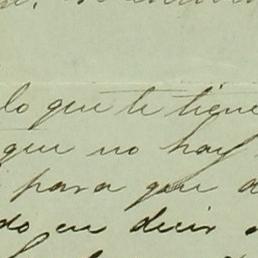 lo que te tiene
que no hay
para que
do en decir